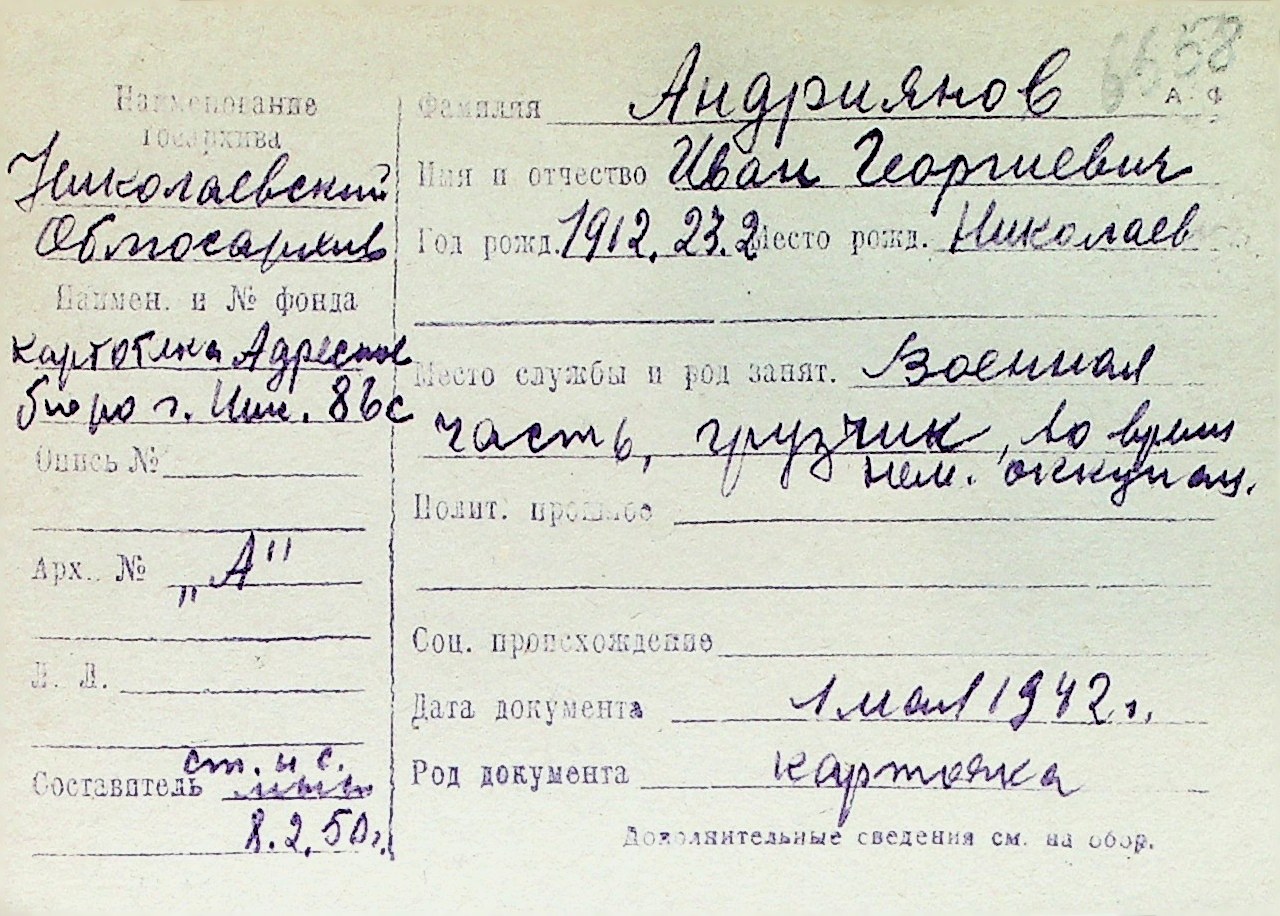 6558
А Ф
Наименование
Госархива
Николаевский
Облгосархив
Наимен. и № фонда
картотека Адресное
бюро г. Ник. 86с
Опись №
Арх. № „А"
Л. Л.
Составитель ст. н. с.
8.2.50г.
Фамилия Андриянов
Имя и отчество Иван Георгиевич
Год рожд. 1912. 23.2 Место рожд. Николаев
Место службы и род занят. Военная
часть, грузчик, во время
нем. оккупац.
Полит. прошлое
Соц. происхождение
Дата документа 1 мая 1942 г.
Род документа карточка
Дополнительные сведения см. на обор.